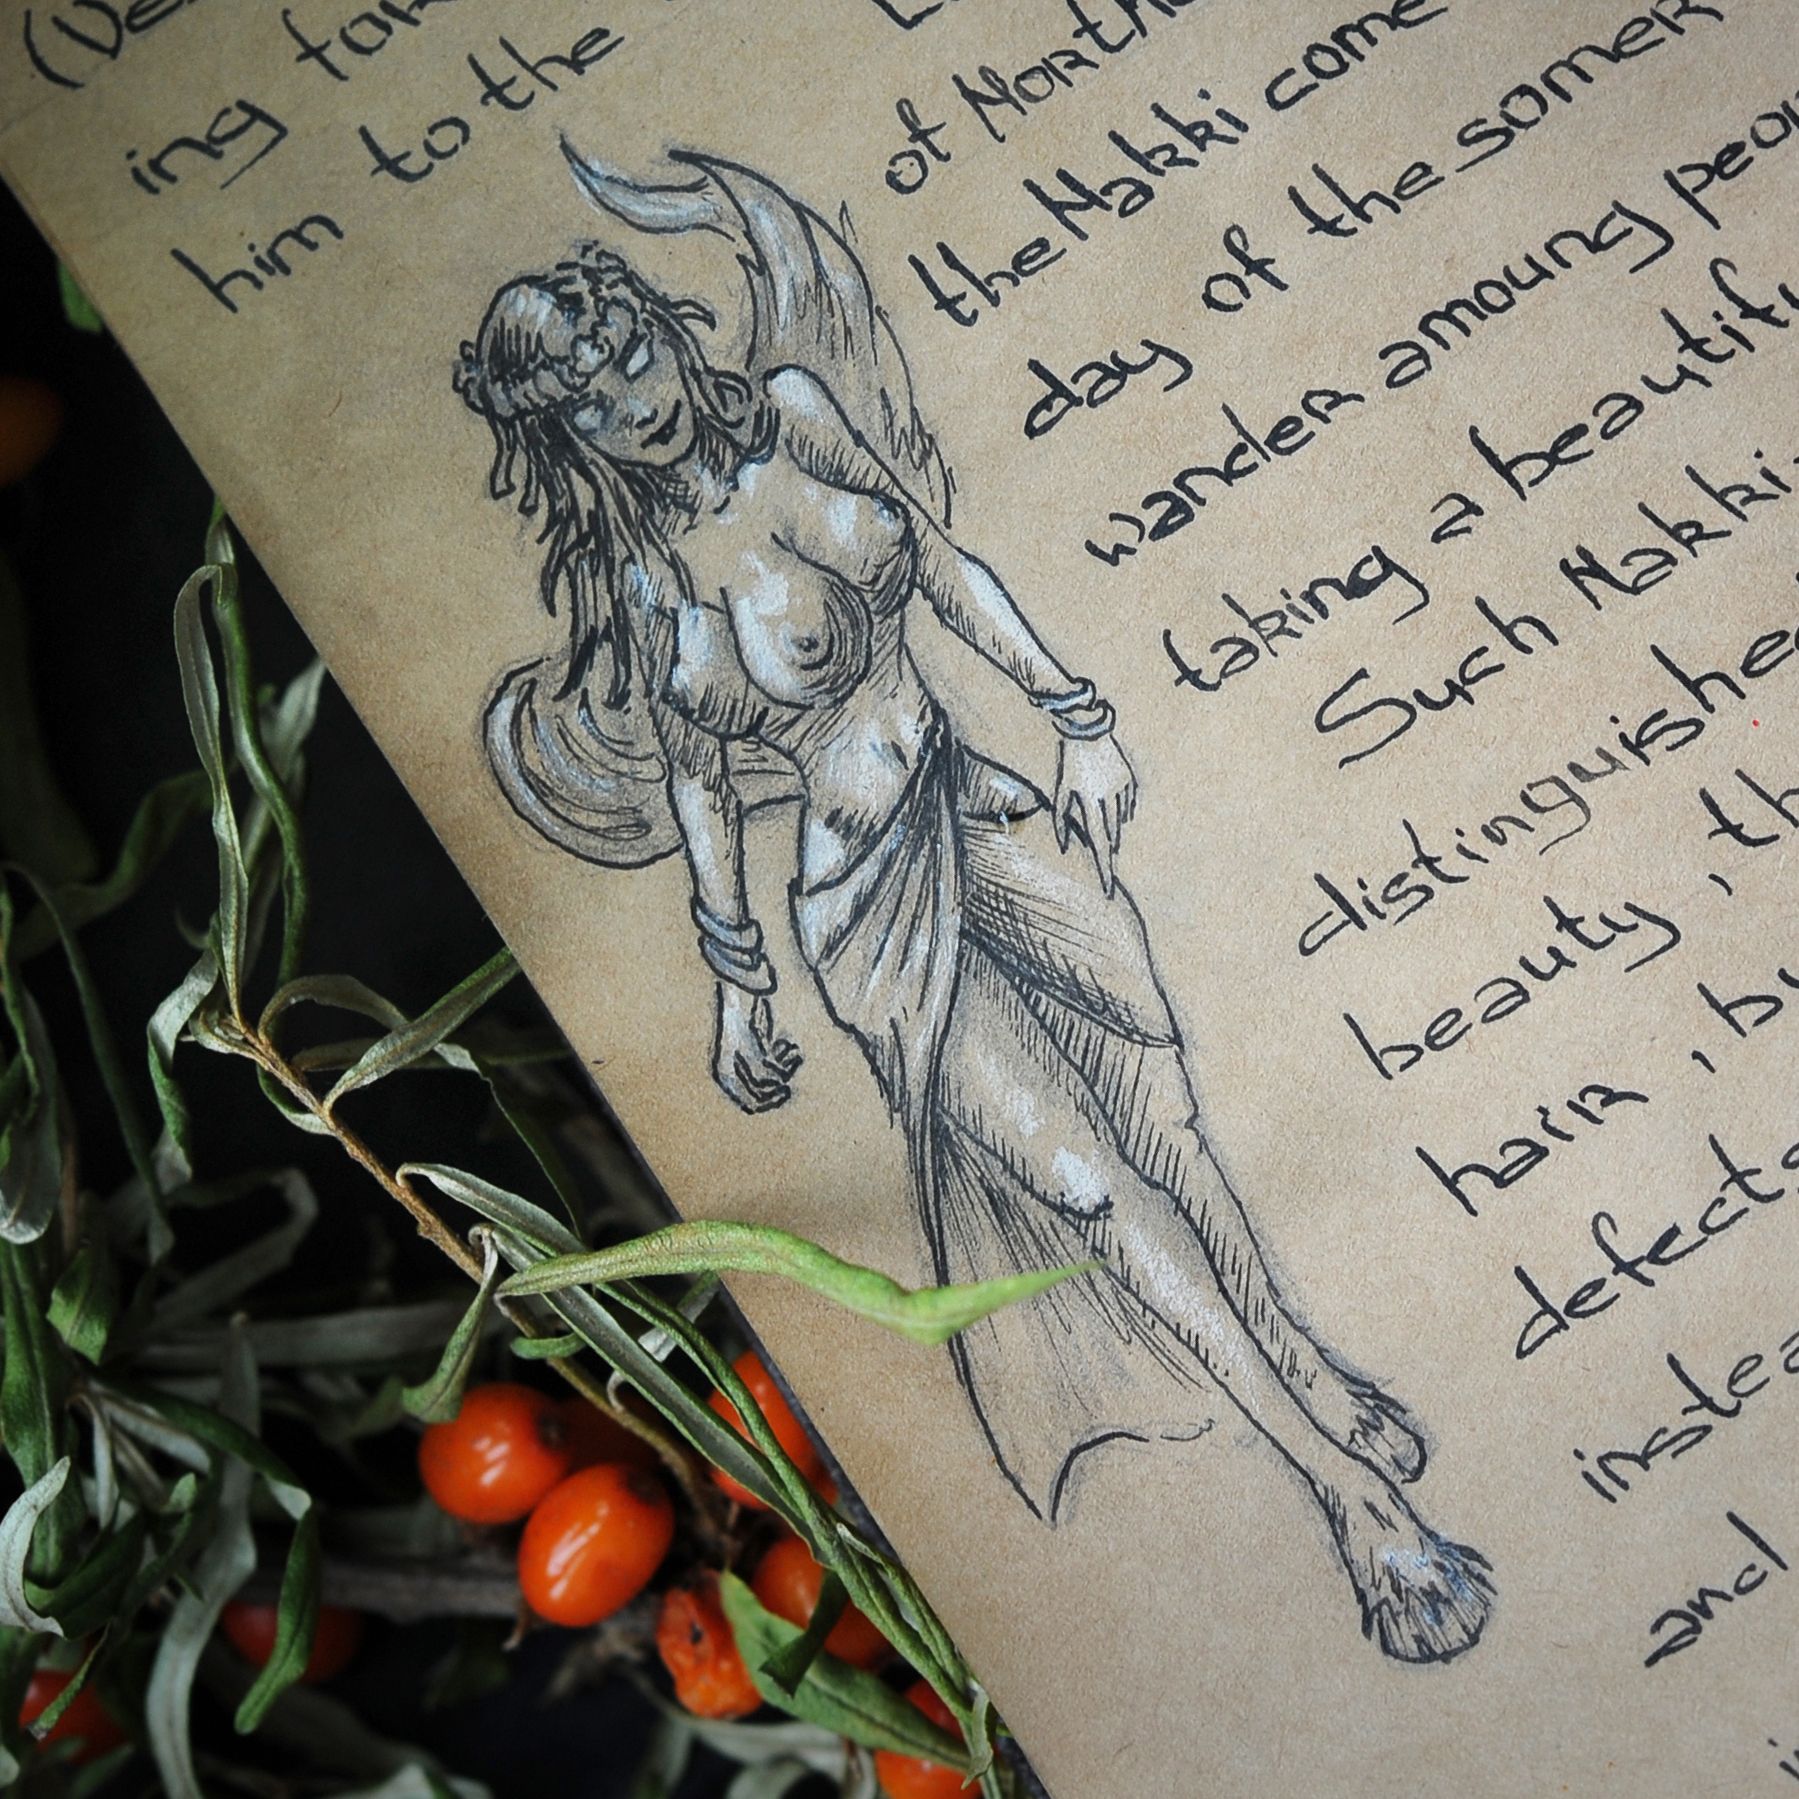 (Ve
ing for
him to the
of Northe
the Nakki come
day of the somer
wander amoung peop
taking a beautifu
Such Nakki
distinguishe
beauty, th
hair, bu
defects
instea
and